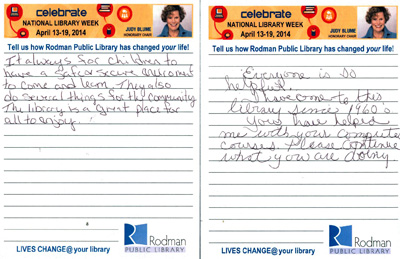 celebrate
NATIONAL LIBRARY WEEK
April 13-19, 2014
JUDY BLUME
HONORARY CHAIR
Tell us how Rodman Public Library has changed your life!
It always for children to
have a safe or secure
to come and learn. They also
do several things for the community.
The library is a great place for
all to enjoy.
Rodman
PUBLIC LIBRARY
LIVES CHANGE@ your library
celebrate
NATIONAL LIBRARY WEEK
April 13-19, 2014
JUDY BLUME
HONORARY CHAIR
Tell us how Rodman Public Library has changed your life!
Everyone is so
helpful.
I have come to this
library since 1960's
You have helped
me with your computer
courses. Please continue
what you are doing
Rodman
PUBLIC LIBRARY
LIVES CHANGE@ your library